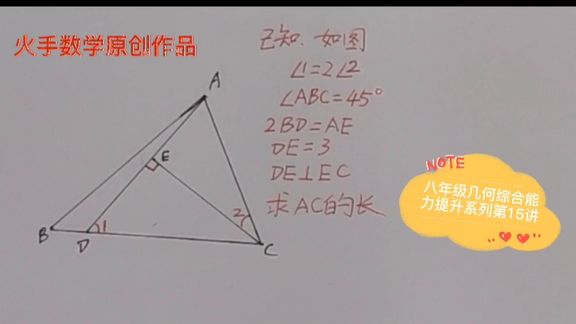 火手数学原创作品
已知.如图
∠1=2∠2
∠ABC=45°
2BD=AE
DE=3
DE⊥EC
求AC的长
NOTE
八年级几何综合能
力提升系列第15讲
A
E
B
D
1
2
C